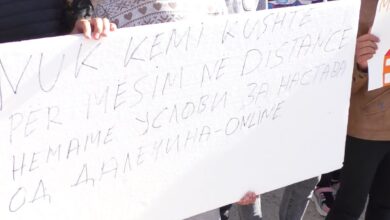 NUK KEMI KUSHTE
PER MESIM NE DISTANCE
НЕМАМЕ УСЛОВИ ЗА НАСТАВА
ОД ДАЛЕЧИНА-ONLINE